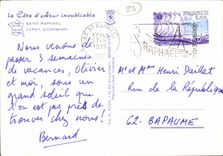 La Côte d'azur inoubliable
SAINT-RAPHAEL
Le Port, la Cathédrale
Nous venons de
passer 3 semaines
de vacances, Olivier
et moi sous un
grand soleil que
l'on est pas près de
trouver chez nous!
Bernard
1979
St RAPHAEL
Mr et Mme Henri Paillet
Rue de la République
62. BAPAUME